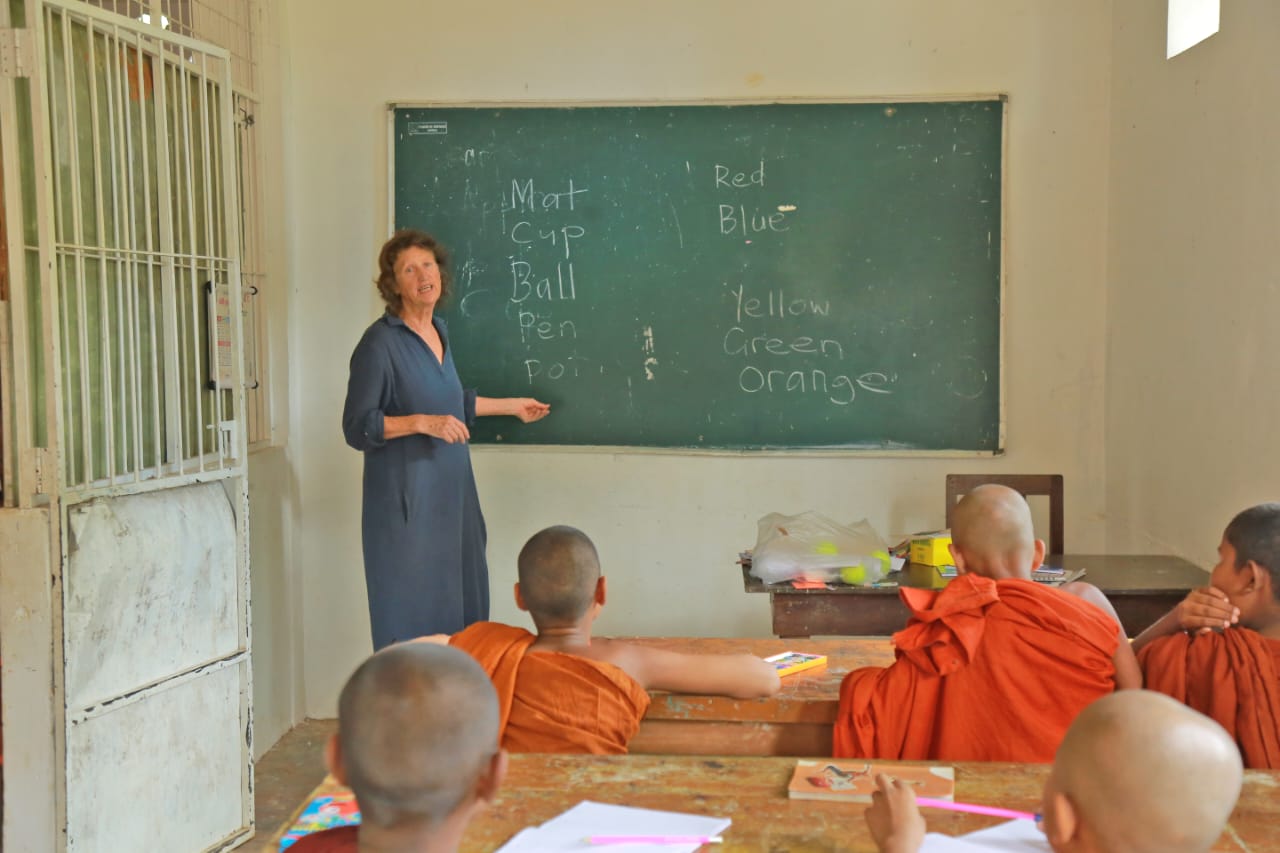 Mat
Cup
Ball
Pen
Red
Blue
Yellow
Green
Orange